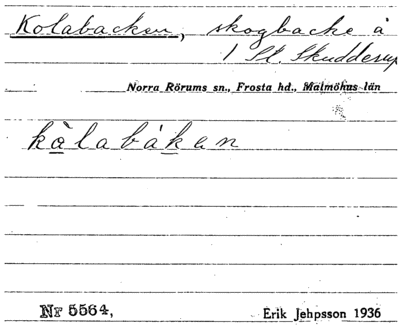 Kolabacken, skogbacke å
1 St. Skudderup
Norra Rörums sn., Frosta hd., Malmöhus län
kàlabákan
Nr 5564,
Erik Jehpsson 1936